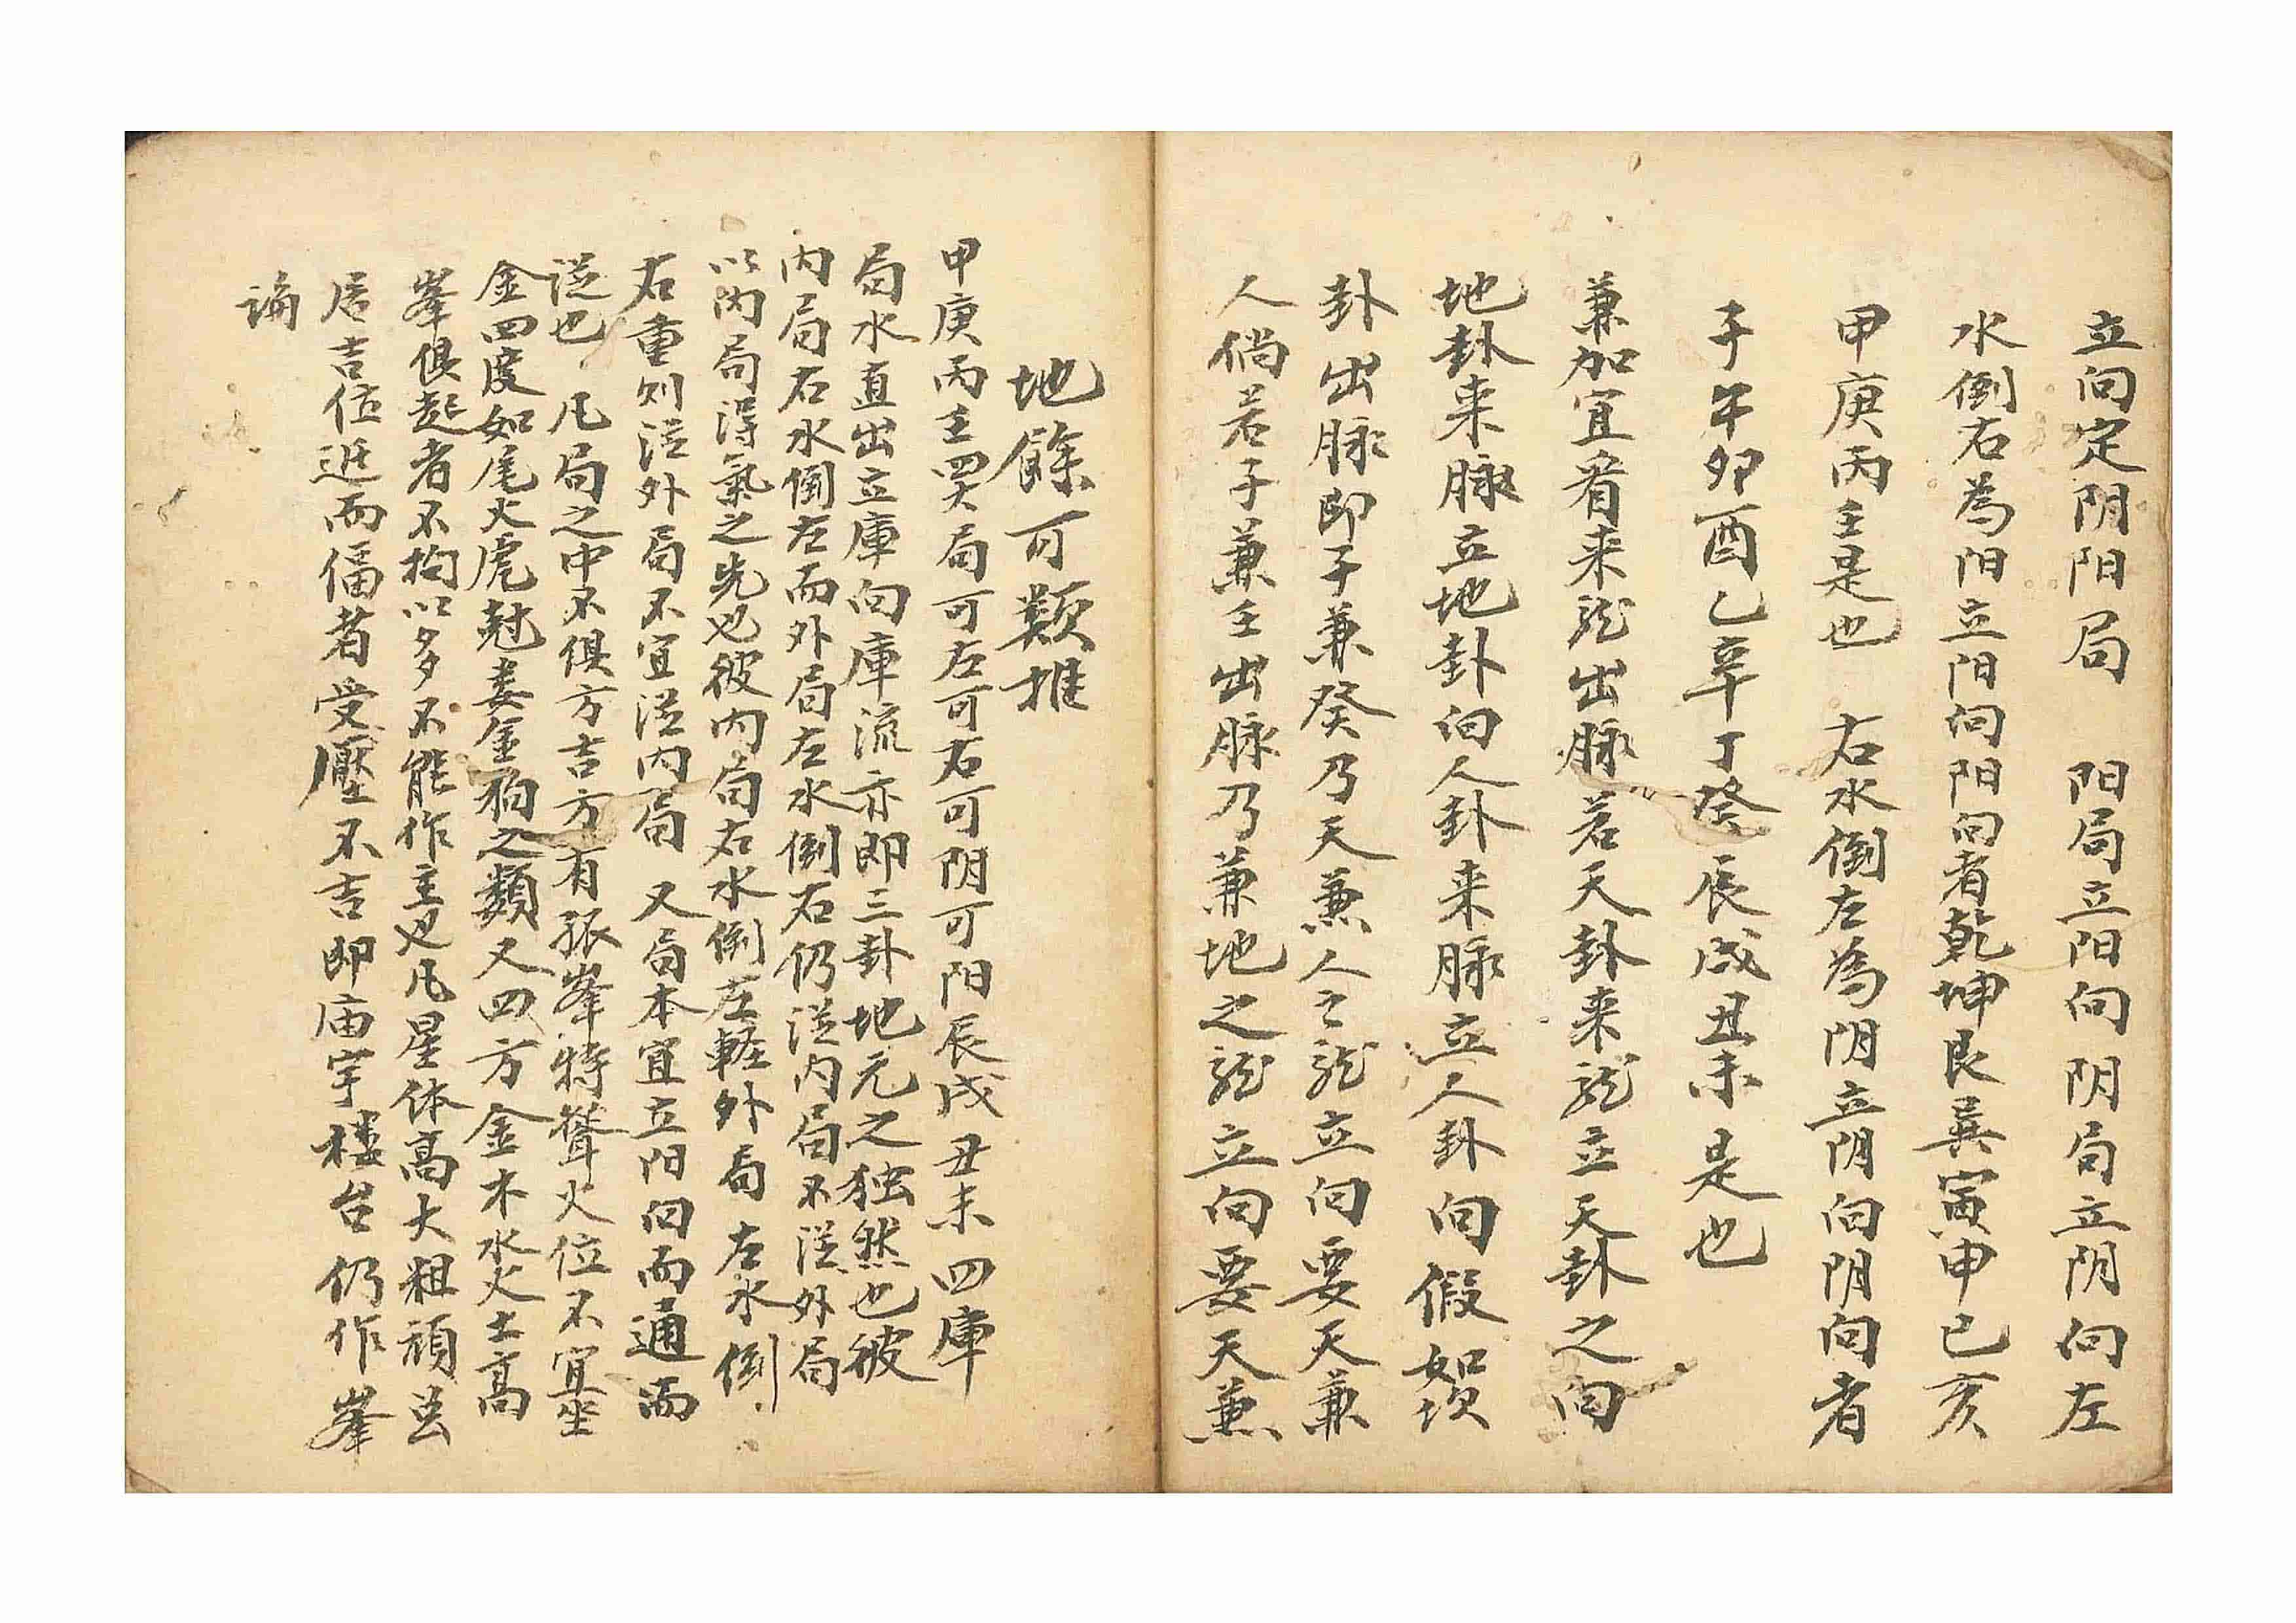 立向定阴阳局　阳局立阳向阴局立阴向左
水倒右為阳立阳向阳向者乾坤艮巽寅申巳亥
甲庚丙壬是也　右水倒左為阴立阴向阴向者
子午卯酉乙辛丁癸辰戌丑未是也
兼加宜看来龙出脉若天卦来龙立天卦之向
地卦来脉立地卦向人卦来脉立人卦向假如坎
卦出脉即子兼癸乃天兼人之龙立向要天兼
人倘若子兼壬出脉乃兼地之龙立向要天兼
地餘可類推
甲庚丙壬四大局可左可右可阴可阳辰戌丑未四庫
局水直出立庫向庫流亦即三卦地元之独然也彼
内局右水倒左而外局左水倒右仍従内局不従外局
以内局得氣之先也彼内局右水倒左軽外局左水倒
右重则従外局不宜従内局　又局本宜立阳向而通而
従也　凡局之中不俱方吉方有孤峯特聳火位不宜坐
金四度如尾火虎兙婁金狗之類又四方金木水火土高
峯俱起者不拘以多不能作主也凡星体高大粗頑豈
居吉位逆而偪者受壓不吉即庙宇楼台仍作峯
論